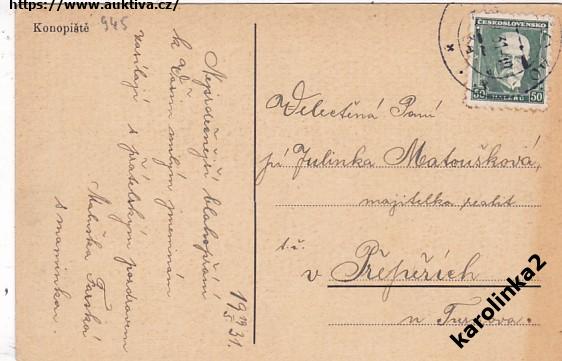 https://www.auktiva.cz/
Konopiště 945
Nejsrdečnější blahopřání
k Vašim milým jmeninám
zasílají s přátelským pozdravem
Maluška Farská
s maminkou.
19 31.
ČESKOSLOVENSKO
50 HALÉŘŮ 50
Velectěná Paní
pí Julinka Matoušková,
majitelka realit
t.č.
v Přepeřích
u Turnova.
karolinka2